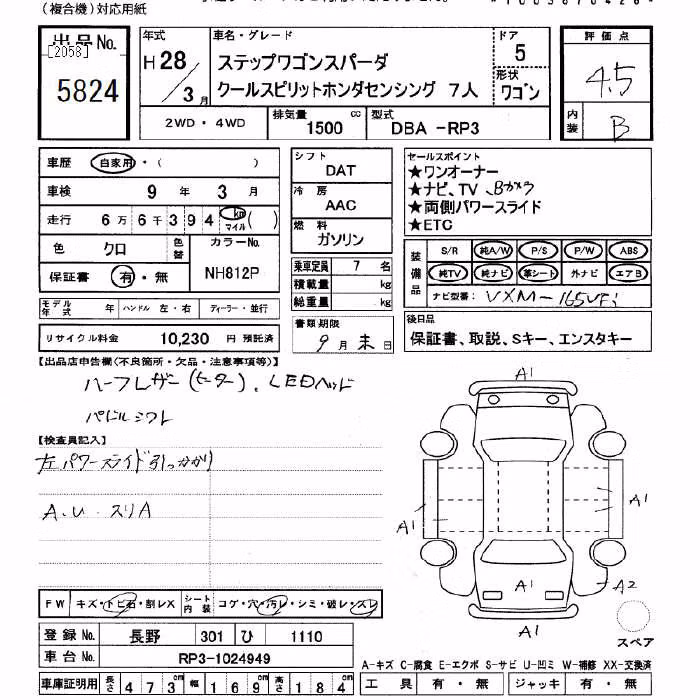 （複合機）対応用紙
出品No.
[2058]
5824
年式
H28/3月
車名・グレード
ステップワゴンスパーダ
クールスピリットホンダセンシング 7人
ドア
5
形状
ワゴン
評価点
4.5
内装
B
2WD・4WD
排気量
1500 cc
型式
DBA -RP3
車歴 自家用・( )
車検 9年 3月
走行 6万6千394 km マイル ( )
色 クロ 色替
カラーNo.
NH812P
保証書 有・無
シフト
DAT
冷房
AAC
燃料
ガソリン
乗車定員 7名
積載量 kg
総重量 kg
セールスポイント
★ワンオーナー
★ナビ、TV、Bカメラ
★両側パワースライド
★ETC
装備品
S/R 純A/W P/S P/W ABS
純TV 純ナビ 革シート 外ナビ エアB
ナビ型番: VXM-165VFi
モデル年式 年 ハンドル 左・右 ディーラー・並行
リサイクル料金 10,230 円 預託済
書類期限
9月末日
後日品
保証書、取説、Sキー、エンスタキー
【出品店申告欄(不良箇所・欠品・注意事項等)】
ハーフレザー(ヒーター)、LEDヘッド
パドルシフト
【検査員記入】
左パワースライド引っかかり
A.U.スリA
FW キズ・トビ石・割レX シート内装 コゲ・穴・汚レ・シミ・破レ・スレ
登録No. 長野 301 ひ 1110
車台No. RP3-1024949
車庫証明用 長さ 473cm 幅 169cm 高さ 184cm
A1
A1
A1
A1
A1
A2
A1
スペア
A-キズ C-腐食 E-エクボ S-サビ U-凹ミ W-補修 XX-交換済
工具 有・無 ジャッキ 有・無